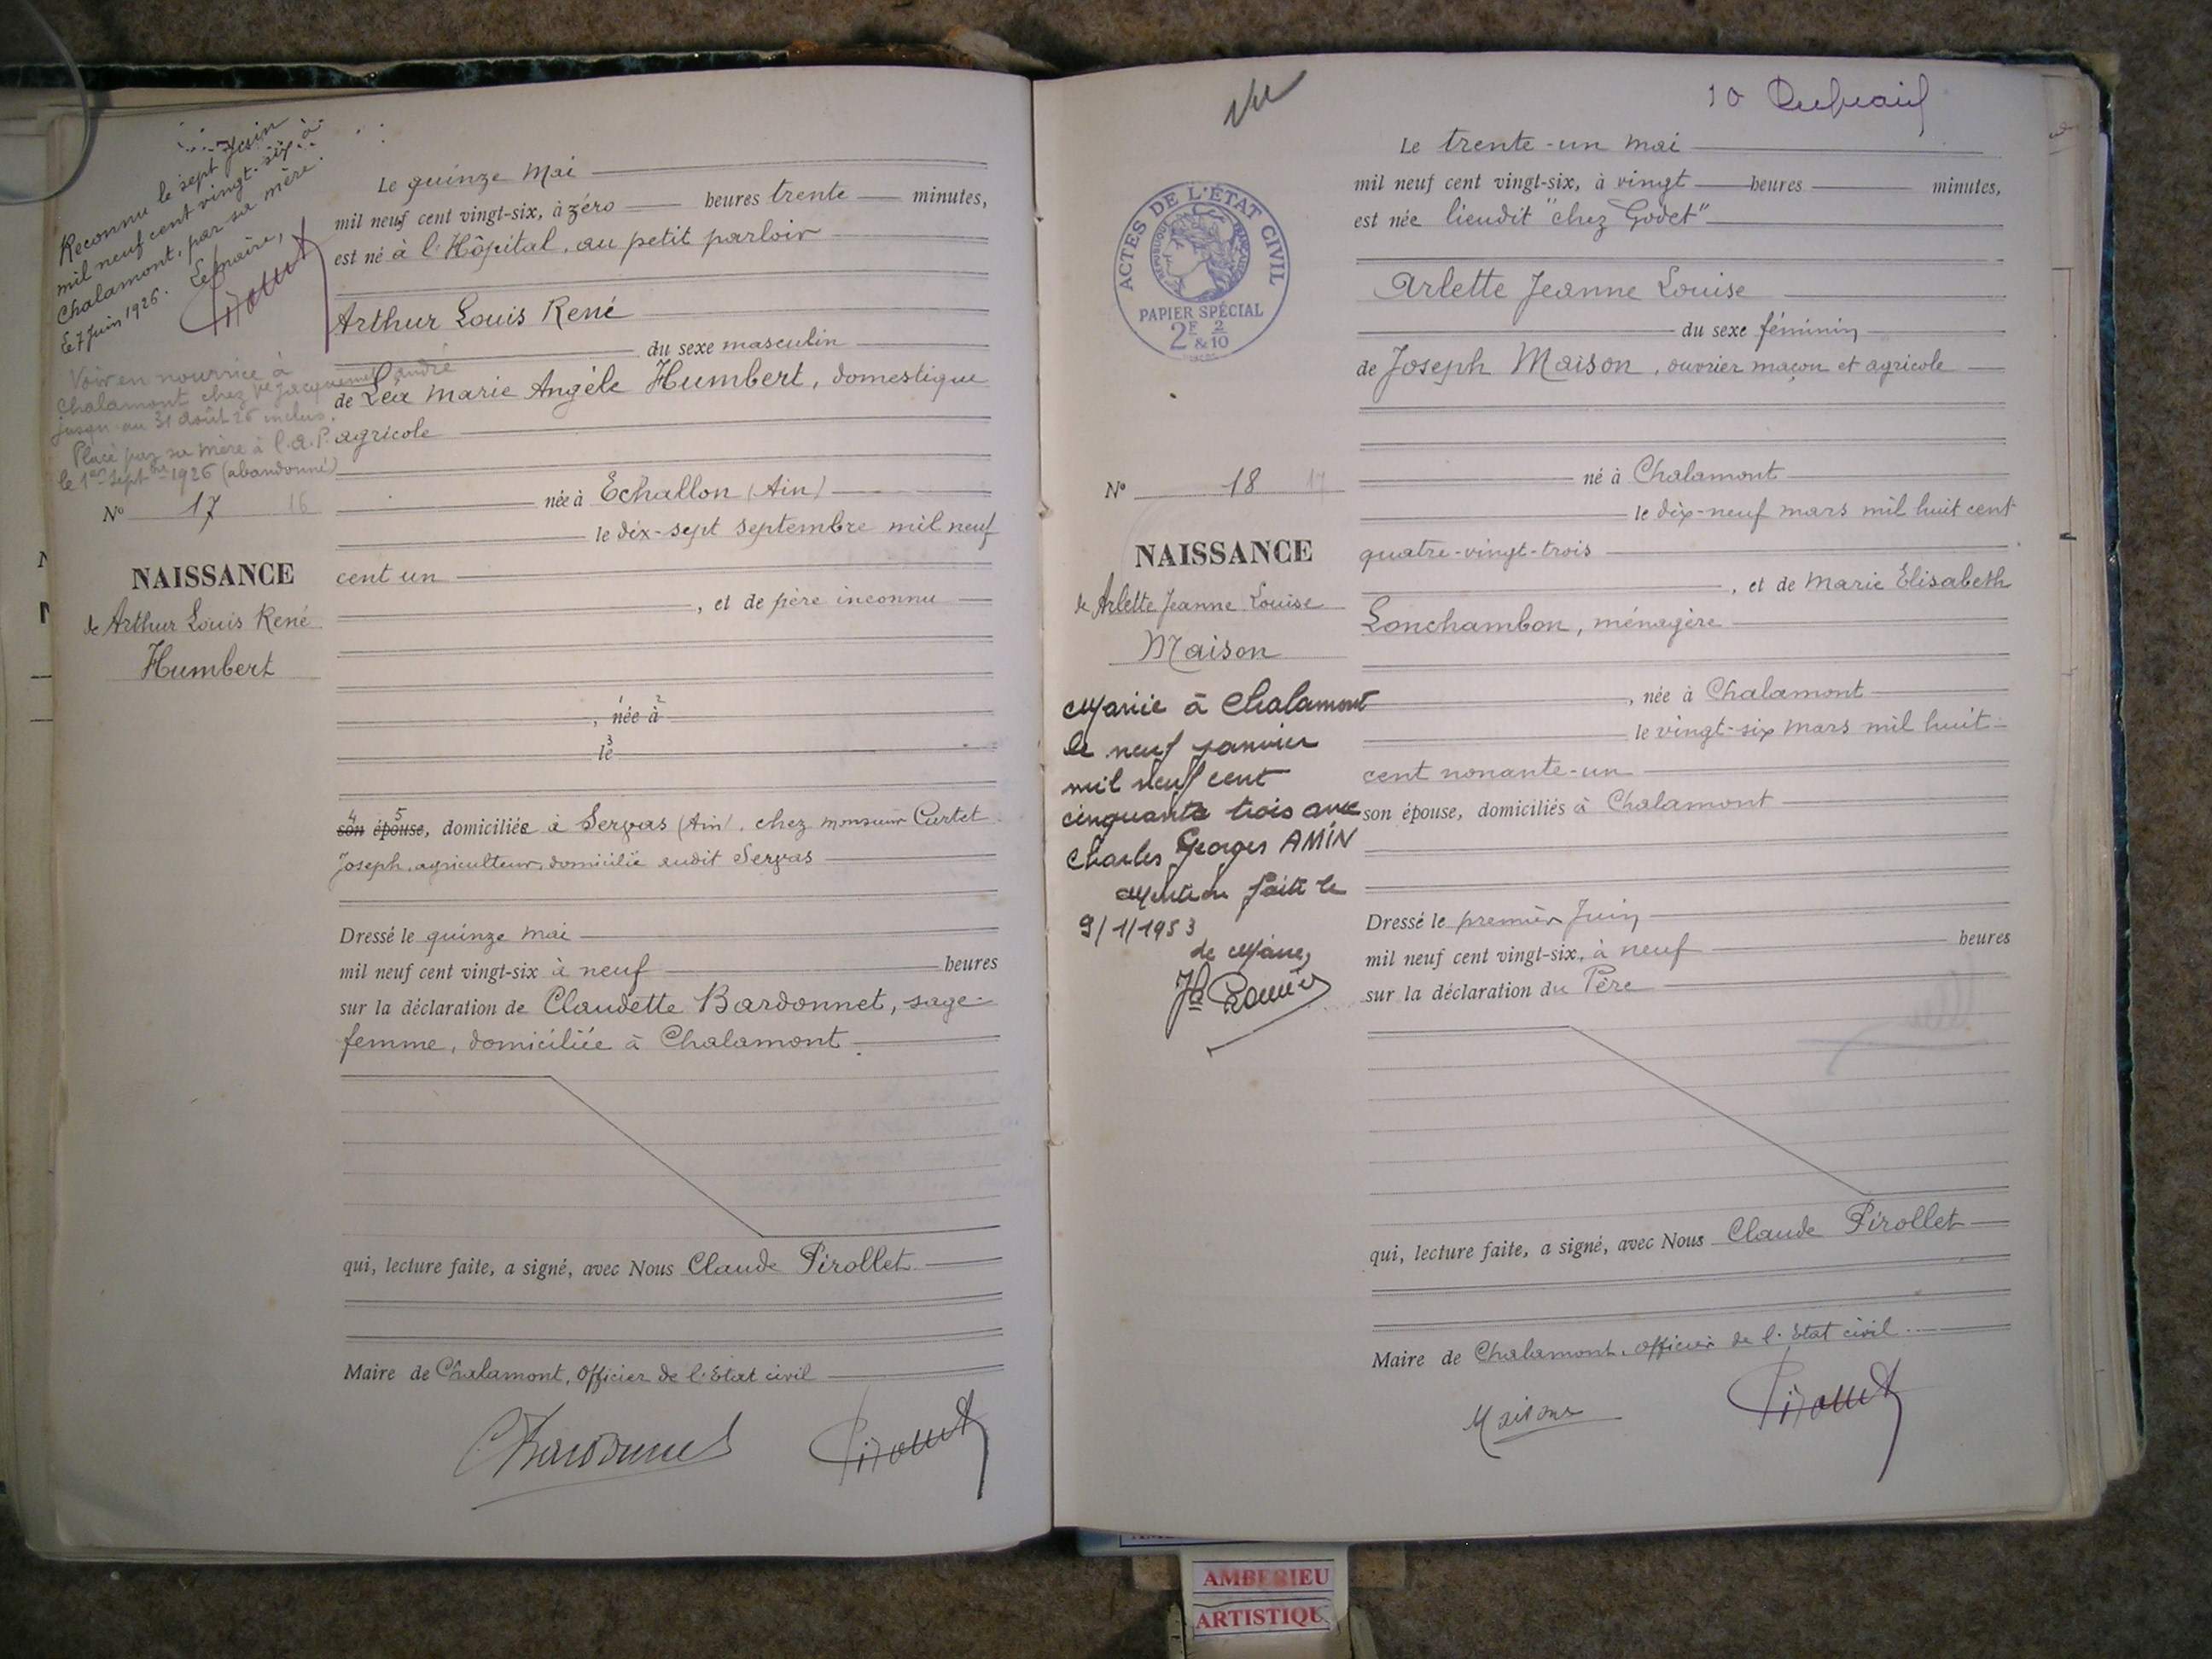 Reconnu le sept Juin
mil neuf cent vingt-six à
Chalamont, par sa mère.
Le 7 Juin 1926. Le maire,
Voir en nourrice à
Chalamont chez Vve Jacquemet andré
jusqu'au 31 août 26 inclus.
Placé par sa mère à l'A.P.
le 1er Septbre 1926 (abandonné)
No 17 16
NAISSANCE
de Arthur Louis René
Humbert
Le quinze Mai
mil neuf cent vingt-six, à zéro heures trente minutes,
est né à l'Hôpital, au petit parloir
Arthur Louis René
du sexe masculin
de Léa Marie Angèle Humbert, domestique
agricole
née à Echallon (Ain)
le dix-sept septembre mil neuf
cent un
, et de père inconnu
, née à
le
son épouse, domiciliée à Servas (Ain), chez monsieur Curtet
Joseph, agriculteur, domicilié audit Servas
Dressé le quinze mai
mil neuf cent vingt-six à neuf heures
sur la déclaration de Claudette Bardonnet, sage-
femme, domiciliée à Chalamont
qui, lecture faite, a signé, avec Nous Claude Pirollet
Maire de Chalamont, Officier de l'Etat civil
ACTES DE L'ÉTAT CIVIL
RÉPUBLIQUE FRANÇAISE
PAPIER SPÉCIAL
2F 2
& 10
No 18 17
NAISSANCE
de Arlette Jeanne Louise
Maison
Mariée à Chalamont
le neuf janvier
mil neuf cent
cinquante trois avec
Charles Georges AMIN
Mention faite le
9/1/1953
Le Maire,
10
Le trente-un mai
mil neuf cent vingt-six, à vingt heures minutes,
est née lieudit "chez Godet"
Arlette Jeanne Louise
du sexe féminin
de Joseph Maison, ouvrier maçon et agricole
né à Chalamont
le dix-neuf mars mil huit cent
quatre-vingt-trois
, et de Marie Elisabeth
Lonchambon, ménagère
, née à Chalamont
le vingt-six mars mil huit-
cent nonante-un
son épouse, domiciliés à Chalamont
Dressé le premier Juin
mil neuf cent vingt-six, à neuf heures
sur la déclaration du Père
qui, lecture faite, a signé, avec Nous Claude Pirollet
Maire de Chalamont, officier de l'Etat civil
AMBERIEU
ARTISTIQU